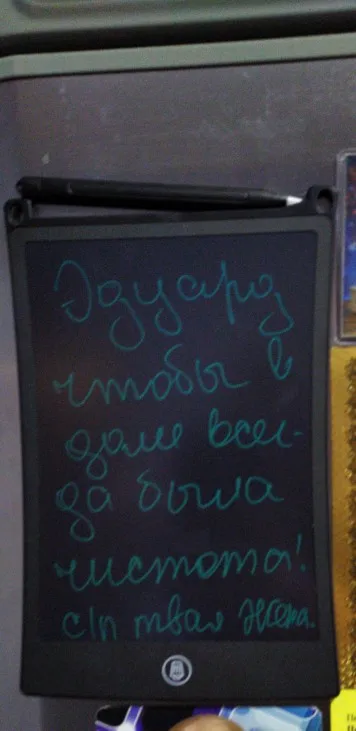 Эдуард
чтобы в
доме всег-
да была
чистота!
с/п твая жена.